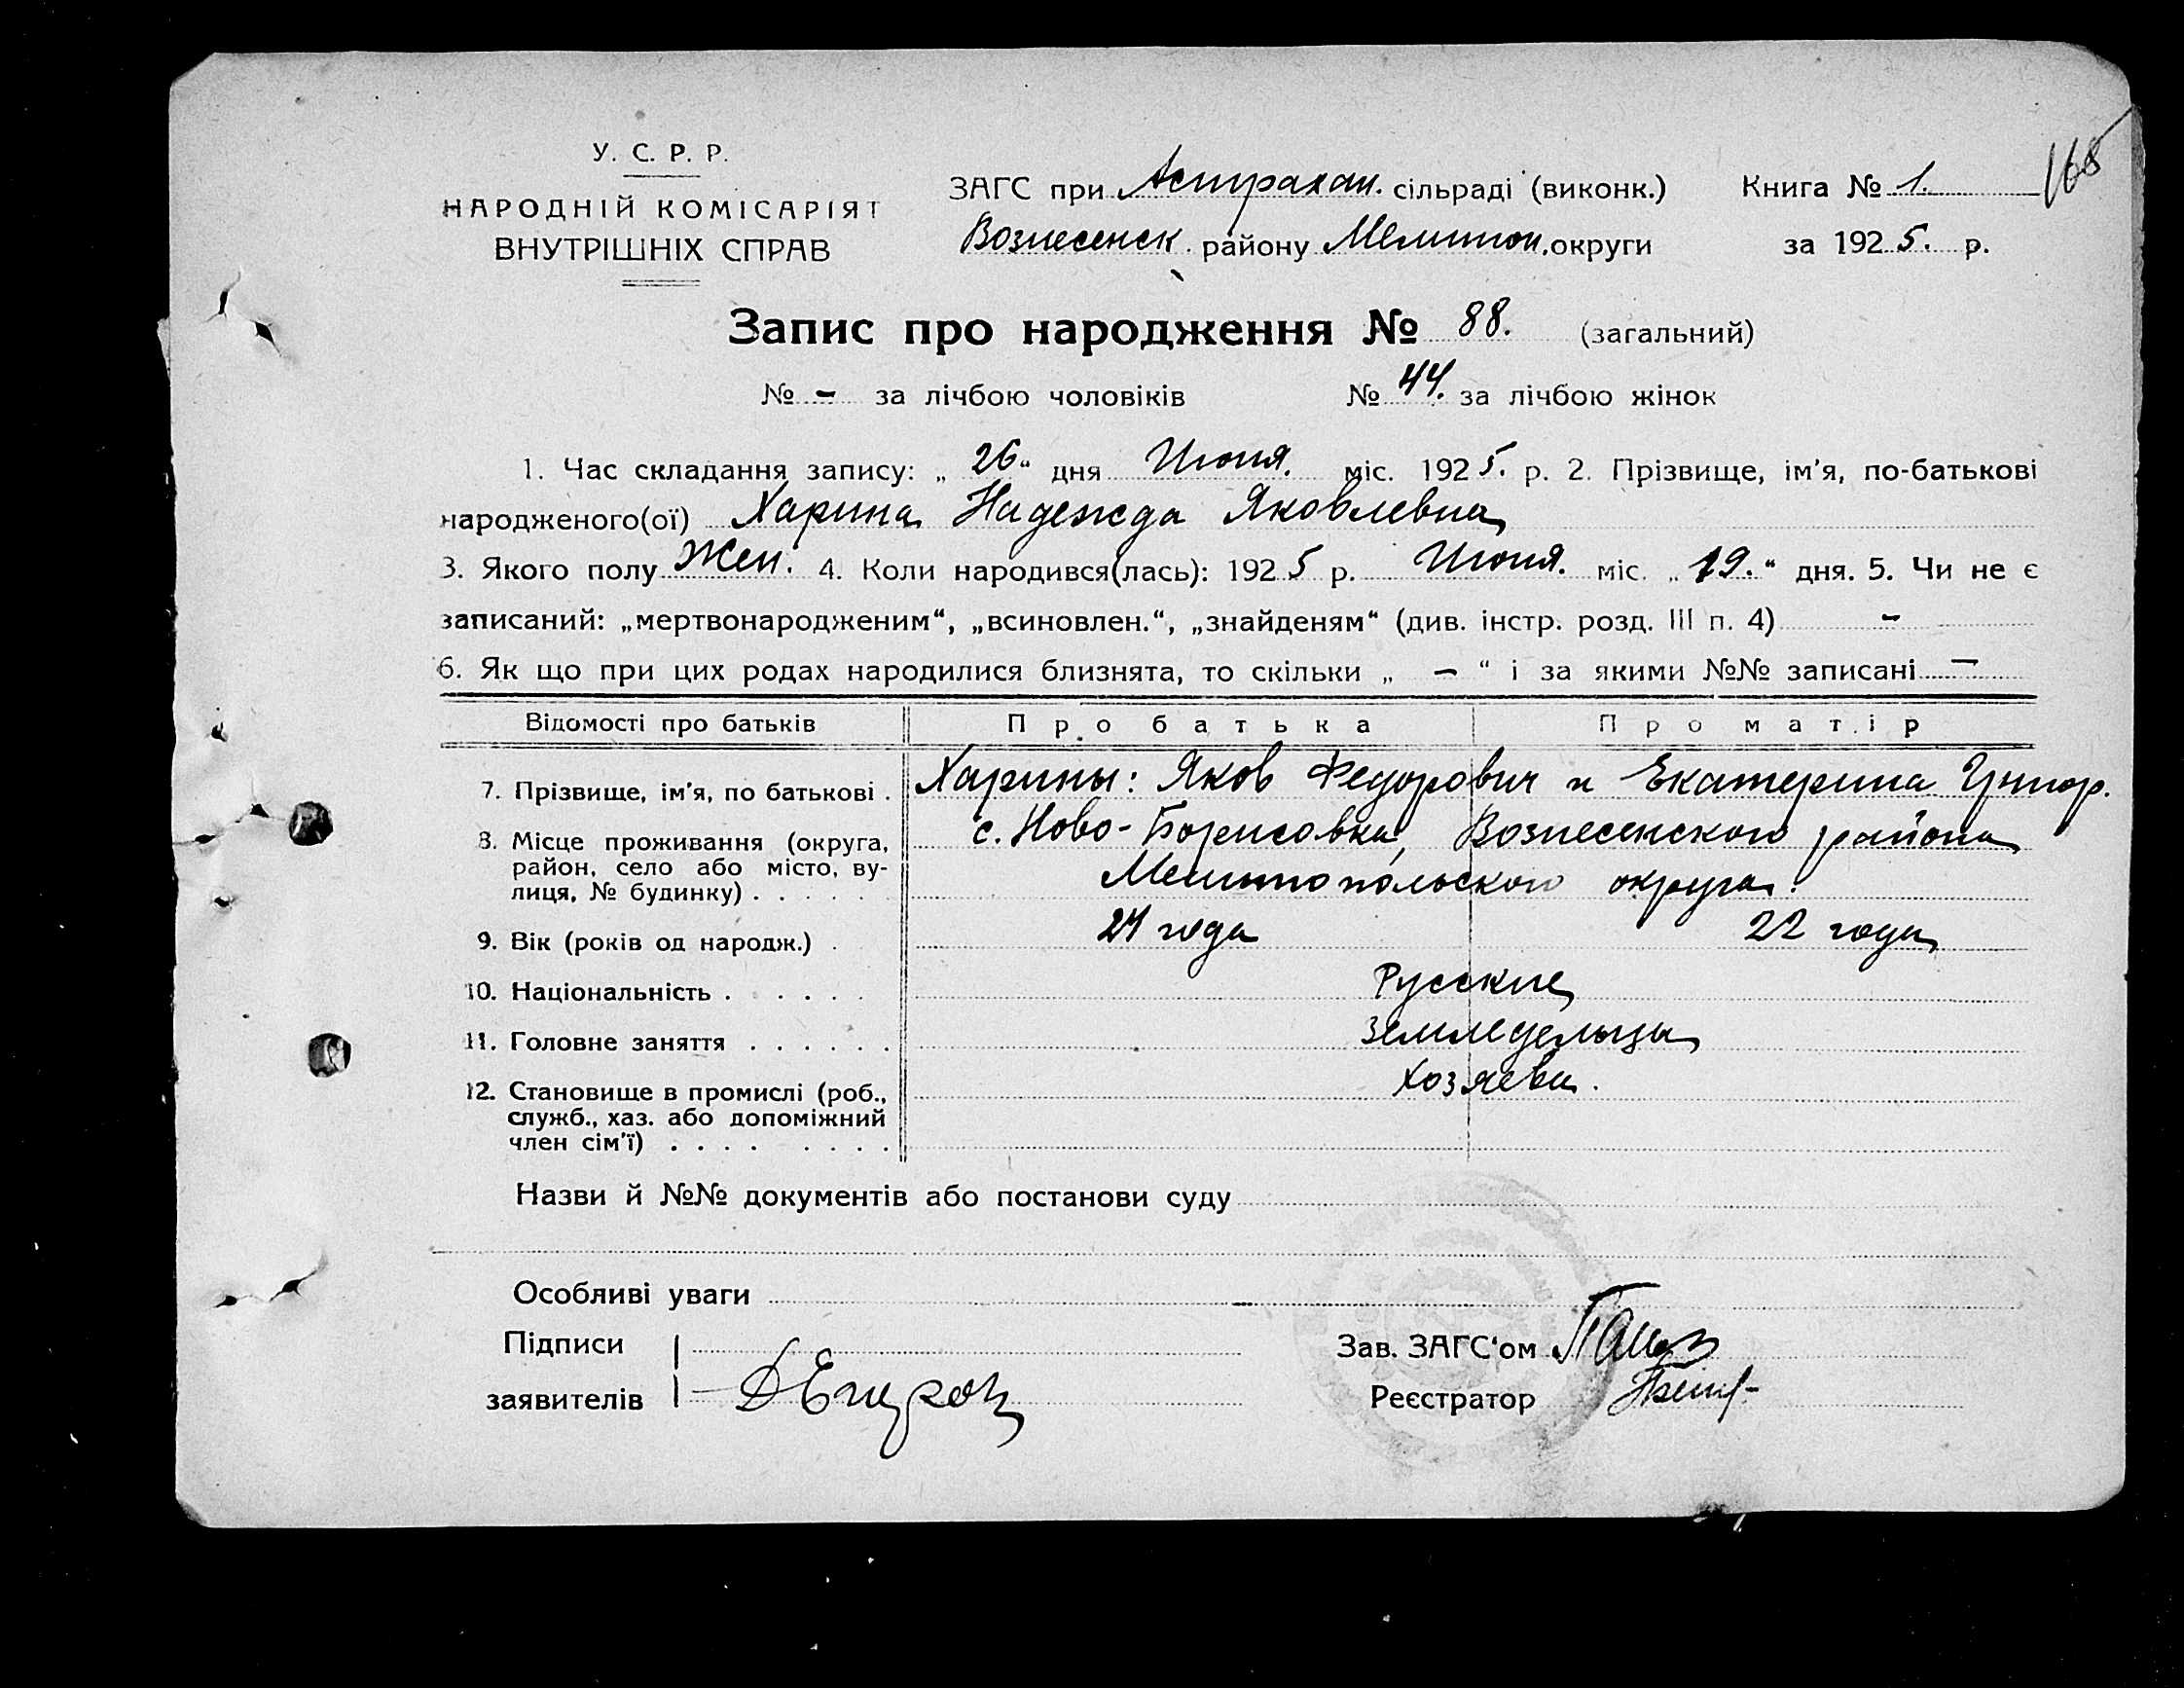 168
У. С. Р. Р.
НАРОДНІЙ КОМІСАРІЯТ
ВНУТРІШНІХ СПРАВ
ЗАГС при Астрахан. сільраді (виконк.) Книга № 1.
Вознесенск. району Мелитоп. округи за 1925. р.
Запис про народження № 88. (загальний)
№ - за лічбою чоловіків № 44. за лічбою жінок
1. Час складання запису: „26“ дня Июня. міс. 1925. р. 2. Прізвище, ім'я, по-батькові
народженого(ої) Харина Надежда Яковлевна
3. Якого полу Жен. 4. Коли народився(лась): 1925 р. Июня. міс. „19.“ дня. 5. Чи не є
записаний: „мертвонародженим“, „всиновлен.“, „знайденям“ (див. інстр. розд. III п. 4) -
6. Як що при цих родах народилися близнята, то скільки „ — “ і за якими №№ записані —
Відомості про батьків Про батька Про матір
7. Прізвище, ім'я, по батькові . Харины: Яков Федорович и Екатерина
8. Місце проживання (округа, район, село або місто, ву-
лиця, № будинку) . . . . . с. Ново-Борисовка, Вознесенского района
Мелитопольского округа.
9. Вік (років од народж.) . 24 года 22 года
10. Національність . . . . . . Русские
11. Головне заняття . . . . . . Земледельцы
12. Становище в промислі (роб., Хозяева.
служб., хаз. або допоміжний
член сім'ї) . . . . . . . .
Назви й №№ документів або постанови суду
Особливі уваги
Підписи
заявителів
Зав. ЗАГС'ом
Реєстратор